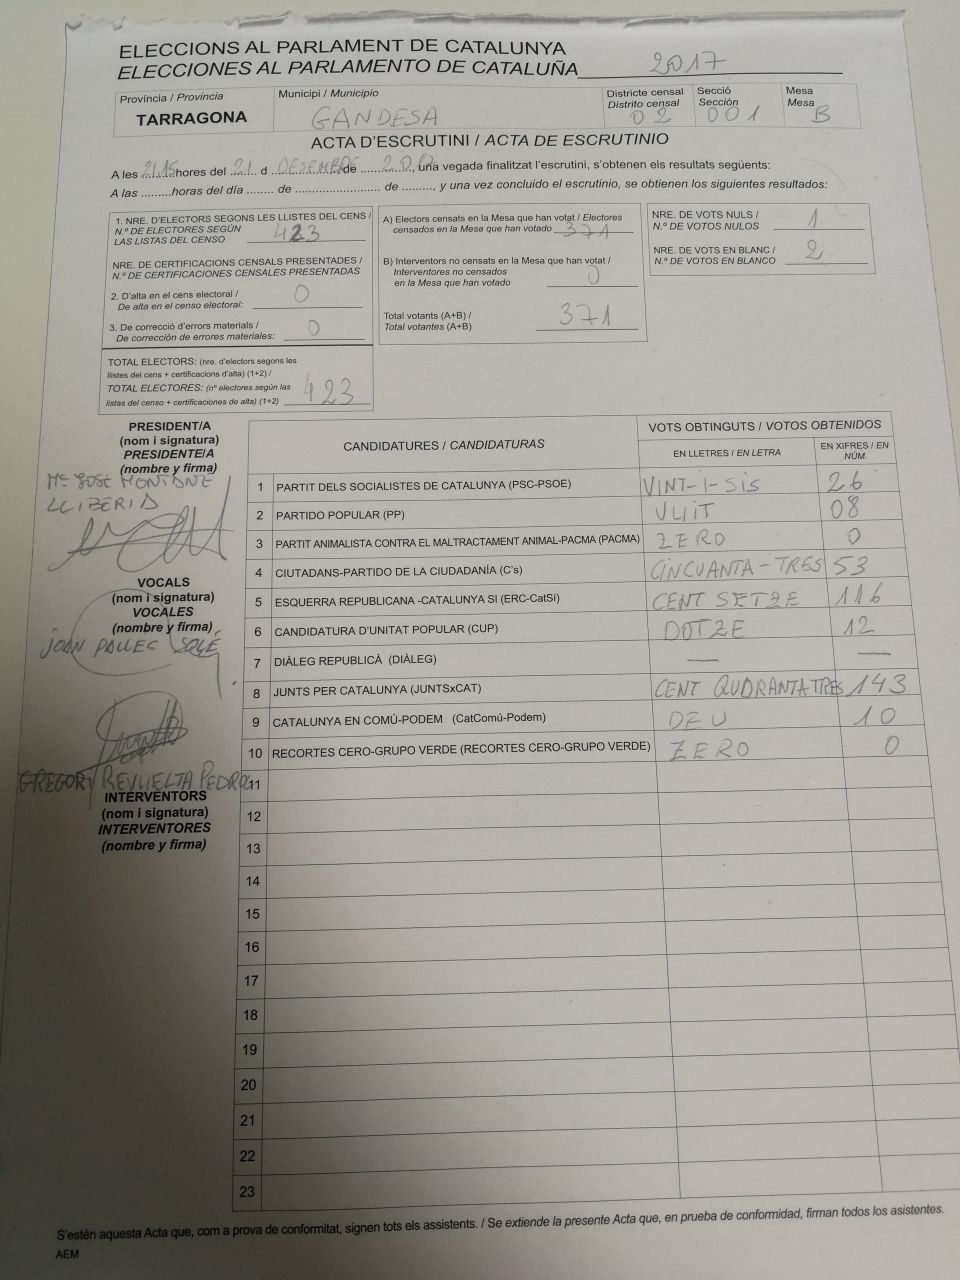 ELECCIONS AL PARLAMENT DE CATALUNYA
ELECCIONES AL PARLAMENTO DE CATALUÑA 2017
Província / Provincia
TARRAGONA
Municipi / Municipio
GANDESA
Districte censal
Distrito censal
02
Secció
Sección
001
Mesa
Mesa
B
ACTA D'ESCRUTINI / ACTA DE ESCRUTINIO
A les 21,15 hores del 21 d DESEMBRE de 2017, una vegada finalitzat l'escrutini, s'obtenen els resultats següents:
A las .........horas del día ........ de .......................... de ........., y una vez concluido el escrutinio, se obtienen los siguientes resultados:
1. NRE. D'ELECTORS SEGONS LES LLISTES DEL CENS /
N.º DE ELECTORES SEGÚN
LAS LISTAS DEL CENSO 423
NRE. DE CERTIFICACIONS CENSALS PRESENTADES /
N.º DE CERTIFICACIONES CENSALES PRESENTADAS
2. D'alta en el cens electoral /
De alta en el censo electoral: 0
3. De correcció d'errors materials /
De corrección de errores materiales: 0
TOTAL ELECTORS: (nre. d'electors segons les
llistes del cens + certificacions d'alta) (1+2) /
TOTAL ELECTORES: (nº electores según las
listas del censo + certificaciones de alta) (1+2) 423
A) Electors censats en la Mesa que han votat / Electores
censados en la Mesa que han votado 371
B) Interventors no censats en la Mesa que han votat /
Interventores no censados
en la Mesa que han votado 0
Total votants (A+B) /
Total votantes (A+B) 371
NRE. DE VOTS NULS /
N.º DE VOTOS NULOS 1
NRE. DE VOTS EN BLANC /
N.º DE VOTOS EN BLANCO 2
PRESIDENT/A
(nom i signatura)
PRESIDENTE/A
(nombre y firma)
Mª JOSÉ MONTANE
VOCALS
(nom i signatura)
VOCALES
(nombre y firma)
JOAN PALLES SOLÉ
GREGORI REVUELTA PEDROL
INTERVENTORS
(nom i signatura)
INTERVENTORES
(nombre y firma)
CANDIDATURES / CANDIDATURAS
VOTS OBTINGUTS / VOTOS OBTENIDOS
EN LLETRES / EN LETRA
EN XIFRES / EN
NÚM.
1 PARTIT DELS SOCIALISTES DE CATALUNYA (PSC-PSOE) VINT-I-SIS 26
2 PARTIDO POPULAR (PP) VUIT 08
3 PARTIT ANIMALISTA CONTRA EL MALTRACTAMENT ANIMAL-PACMA (PACMA) ZERO 0
4 CIUTADANS-PARTIDO DE LA CIUDADANÍA (C's) CINCUANTA-TRES 53
5 ESQUERRA REPUBLICANA -CATALUNYA SI (ERC-CatSí) CENT SETZE 116
6 CANDIDATURA D'UNITAT POPULAR (CUP) DOTZE 12
7 DIÀLEG REPUBLICÀ (DIÀLEG) — —
8 JUNTS PER CATALUNYA (JUNTSxCAT) CENT QUARANTA TRES 143
9 CATALUNYA EN COMÚ-PODEM (CatComú-Podem) DEU 10
10 RECORTES CERO-GRUPO VERDE (RECORTES CERO-GRUPO VERDE) ZERO 0
11
12
13
14
15
16
17
18
19
20
21
22
23
S'estén aquesta Acta que, com a prova de conformitat, signen tots els assistents. / Se extiende la presente Acta que, en prueba de conformidad, firman todos los asistentes.
AEM